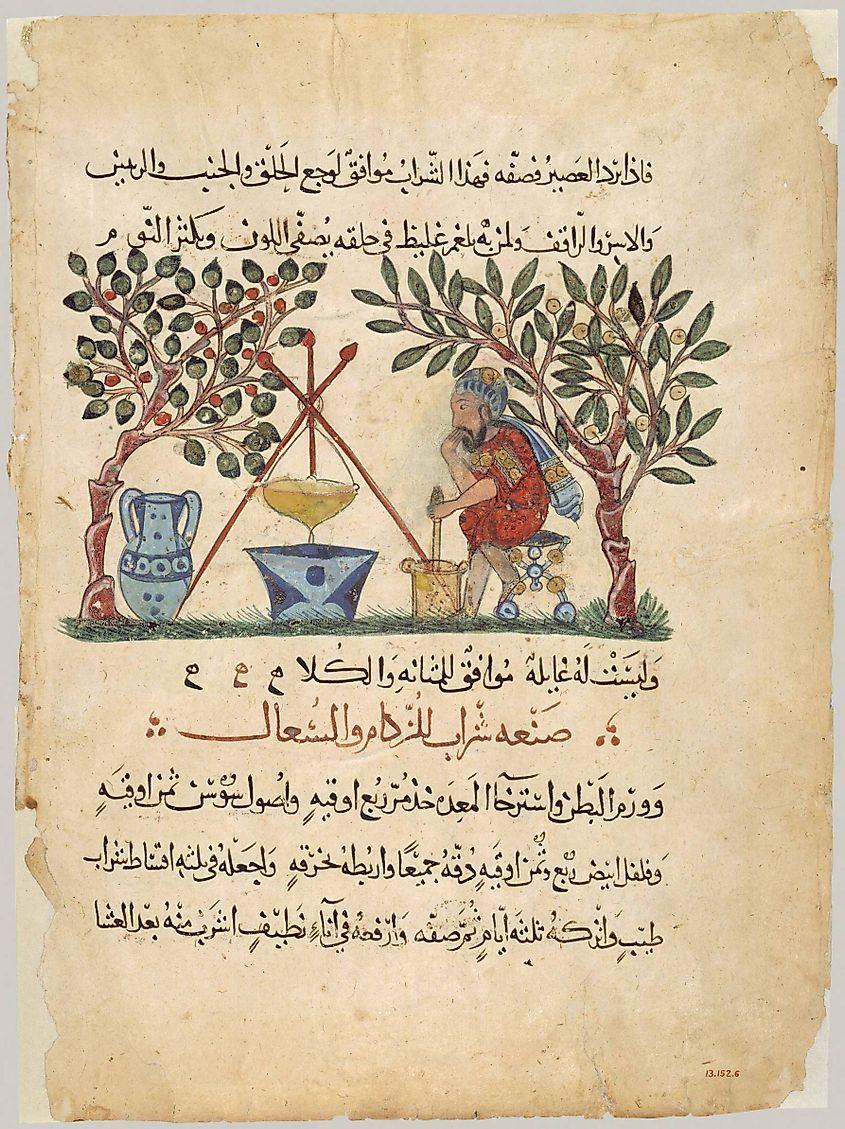 فاذا برد العصير فصفّه فهذا الشراب موافق لوجع الحلق والجنب والريتين
والاسر والراقف ولمن به بلغم غليظ في حلقه يصفّى اللون ويكثر النوم
وليست له غايلة موافق للمثانه والكلا ح ح ح
صنعه شراب للزكام والسعال
وورم البطن واسترخا المعده خذ مرّ ربع اوقيه واصول سوس ثمن اوقيه
وفلفل ابيض ربع وثمن اوقيه دقه جميعًا واربطه بخرقه واجعله في ثلثه اقساط شراب
طيب واتركه ثلثه ايام ثم صفّه وارفعه في اناء نظيف اشرب منه بعد العشا
13.152.6